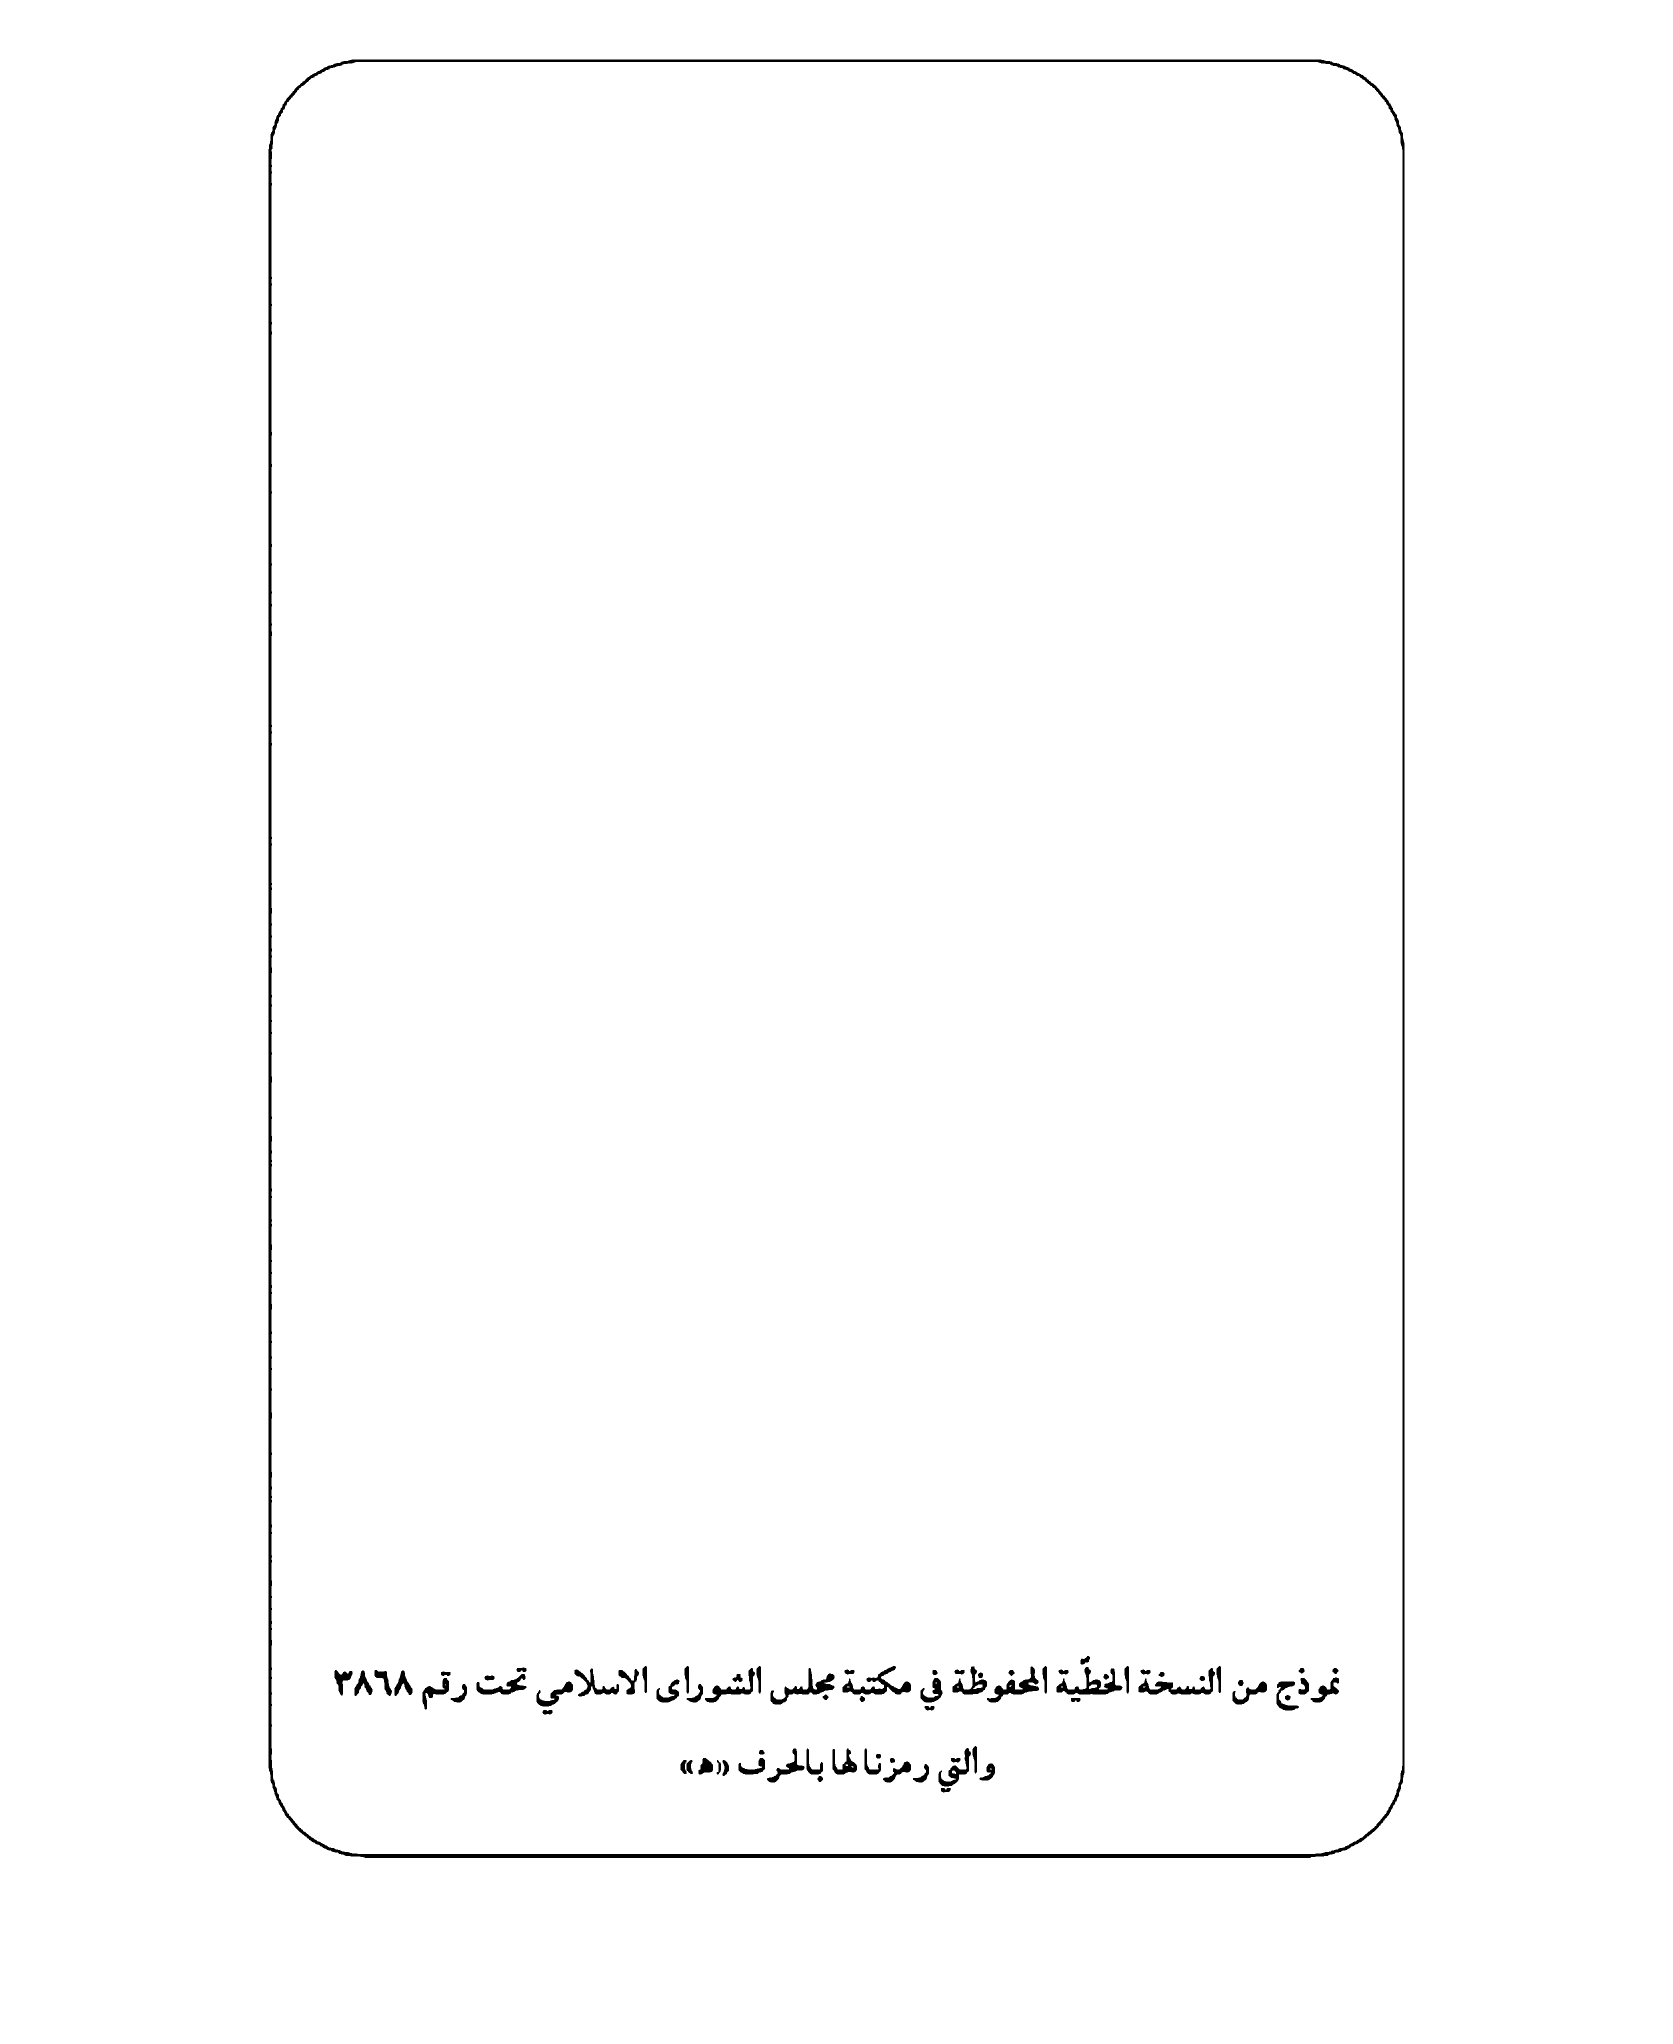 نموذج من النسخة الخطّية المحفوظة في مكتبة مجلس الشوراى الاسلامي تحت رقم ٣٨٦٨
والتي رمزنا لها بالحرف «ﻫ»